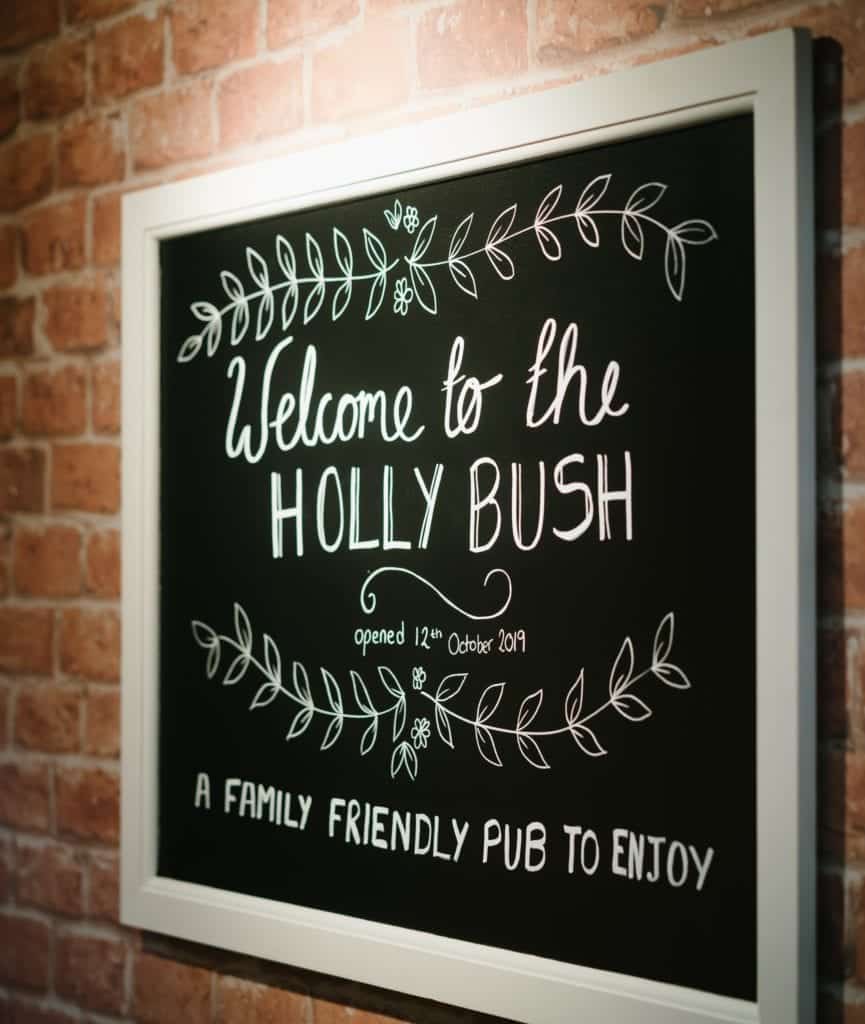 Welcome to the
HOLLY BUSH
opened 12th October 2019
A FAMILY FRIENDLY PUB TO ENJOY